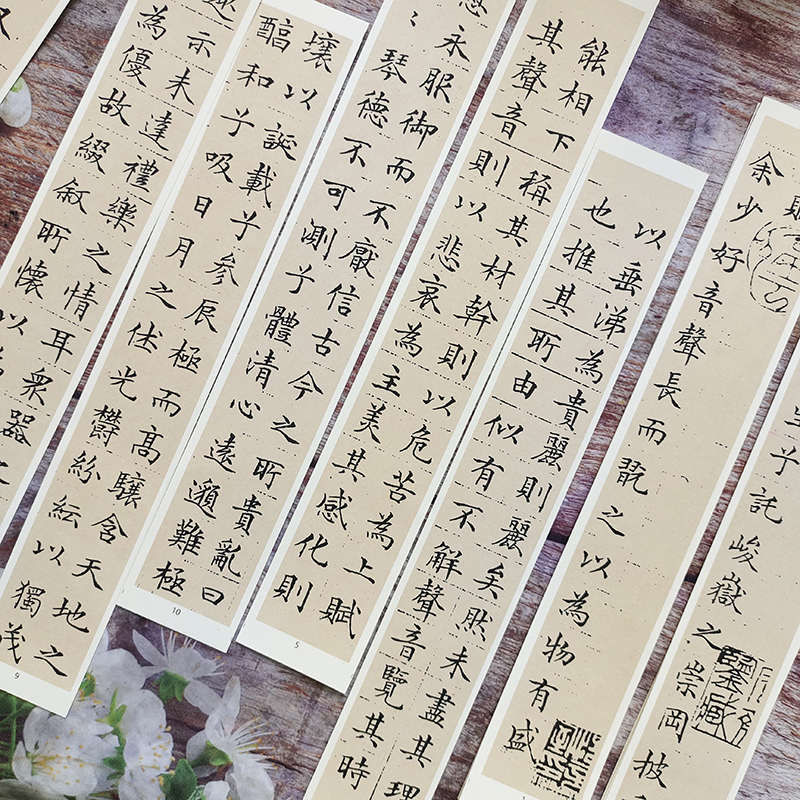 生于託峻嶽之崇岡披
余少好音聲長而翫之以為物有盛
以垂涕為貴麗則麗矣然未盡其理
也推其所由似有不解聲音覽其時
能相下稱其材幹則以危苦為上賦
其聲音則以悲哀為主美其感化則
永服御而不厭信古今之所貴亂曰
琴德不可測兮體清心遠邈難極
5
壤以誕載兮參辰極而高驤含天地之
醕和兮吸日月之休光鬱紛紜以獨茂
10
趣示未達禮樂之情耳衆器之
為優故綴叙所懷以為
9